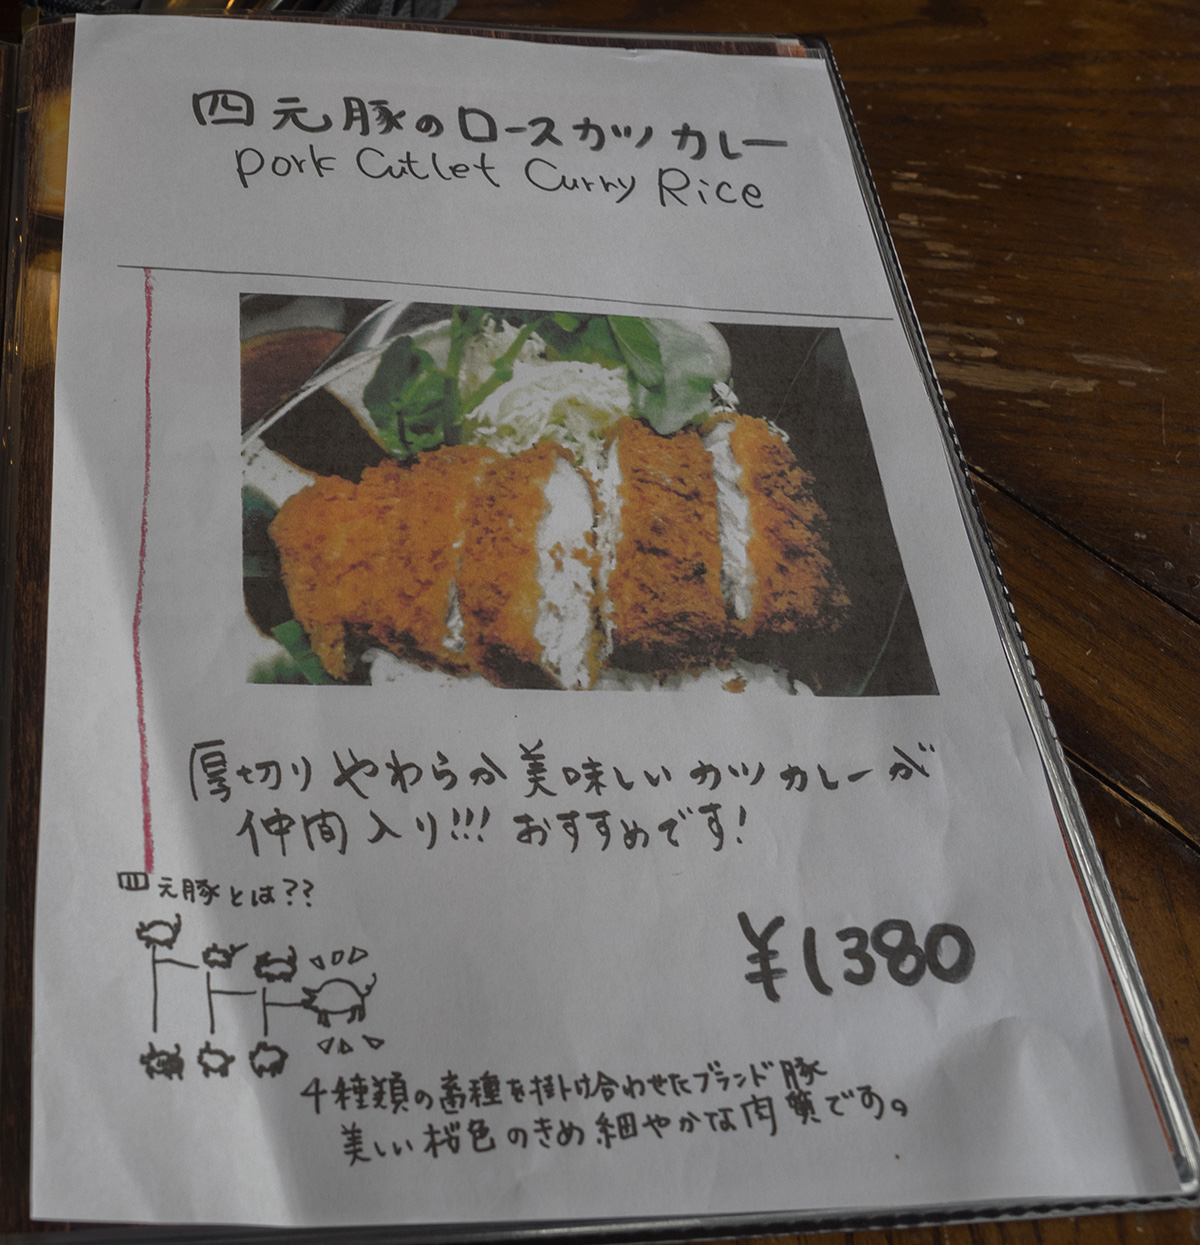 四元豚のロースカツカレー
Pork Cutlet Curry Rice
厚切りやわらか美味しいカツカレーが
仲間入り!!! おすすめです!
四元豚とは??
¥1380
4種類の畜種を掛け合わせたブランド豚
美しい桜色のきめ細やかな肉質です。